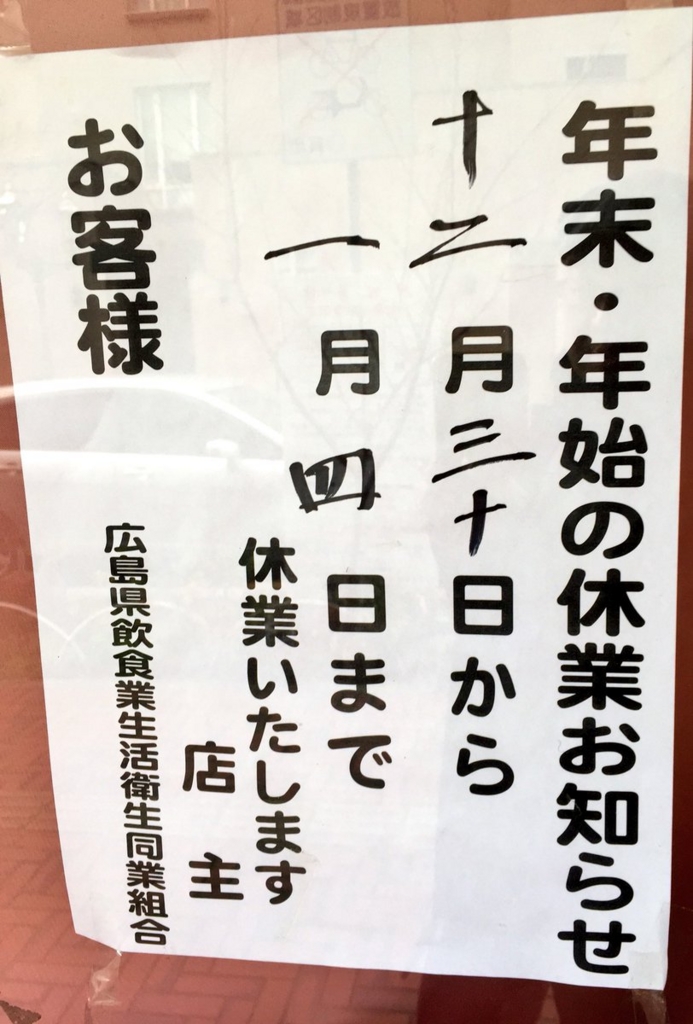 年末・年始の休業お知らせ
十二月三十日から
一月四日まで
休業いたします
店主
お客様
広島県飲食業生活衛生同業組合